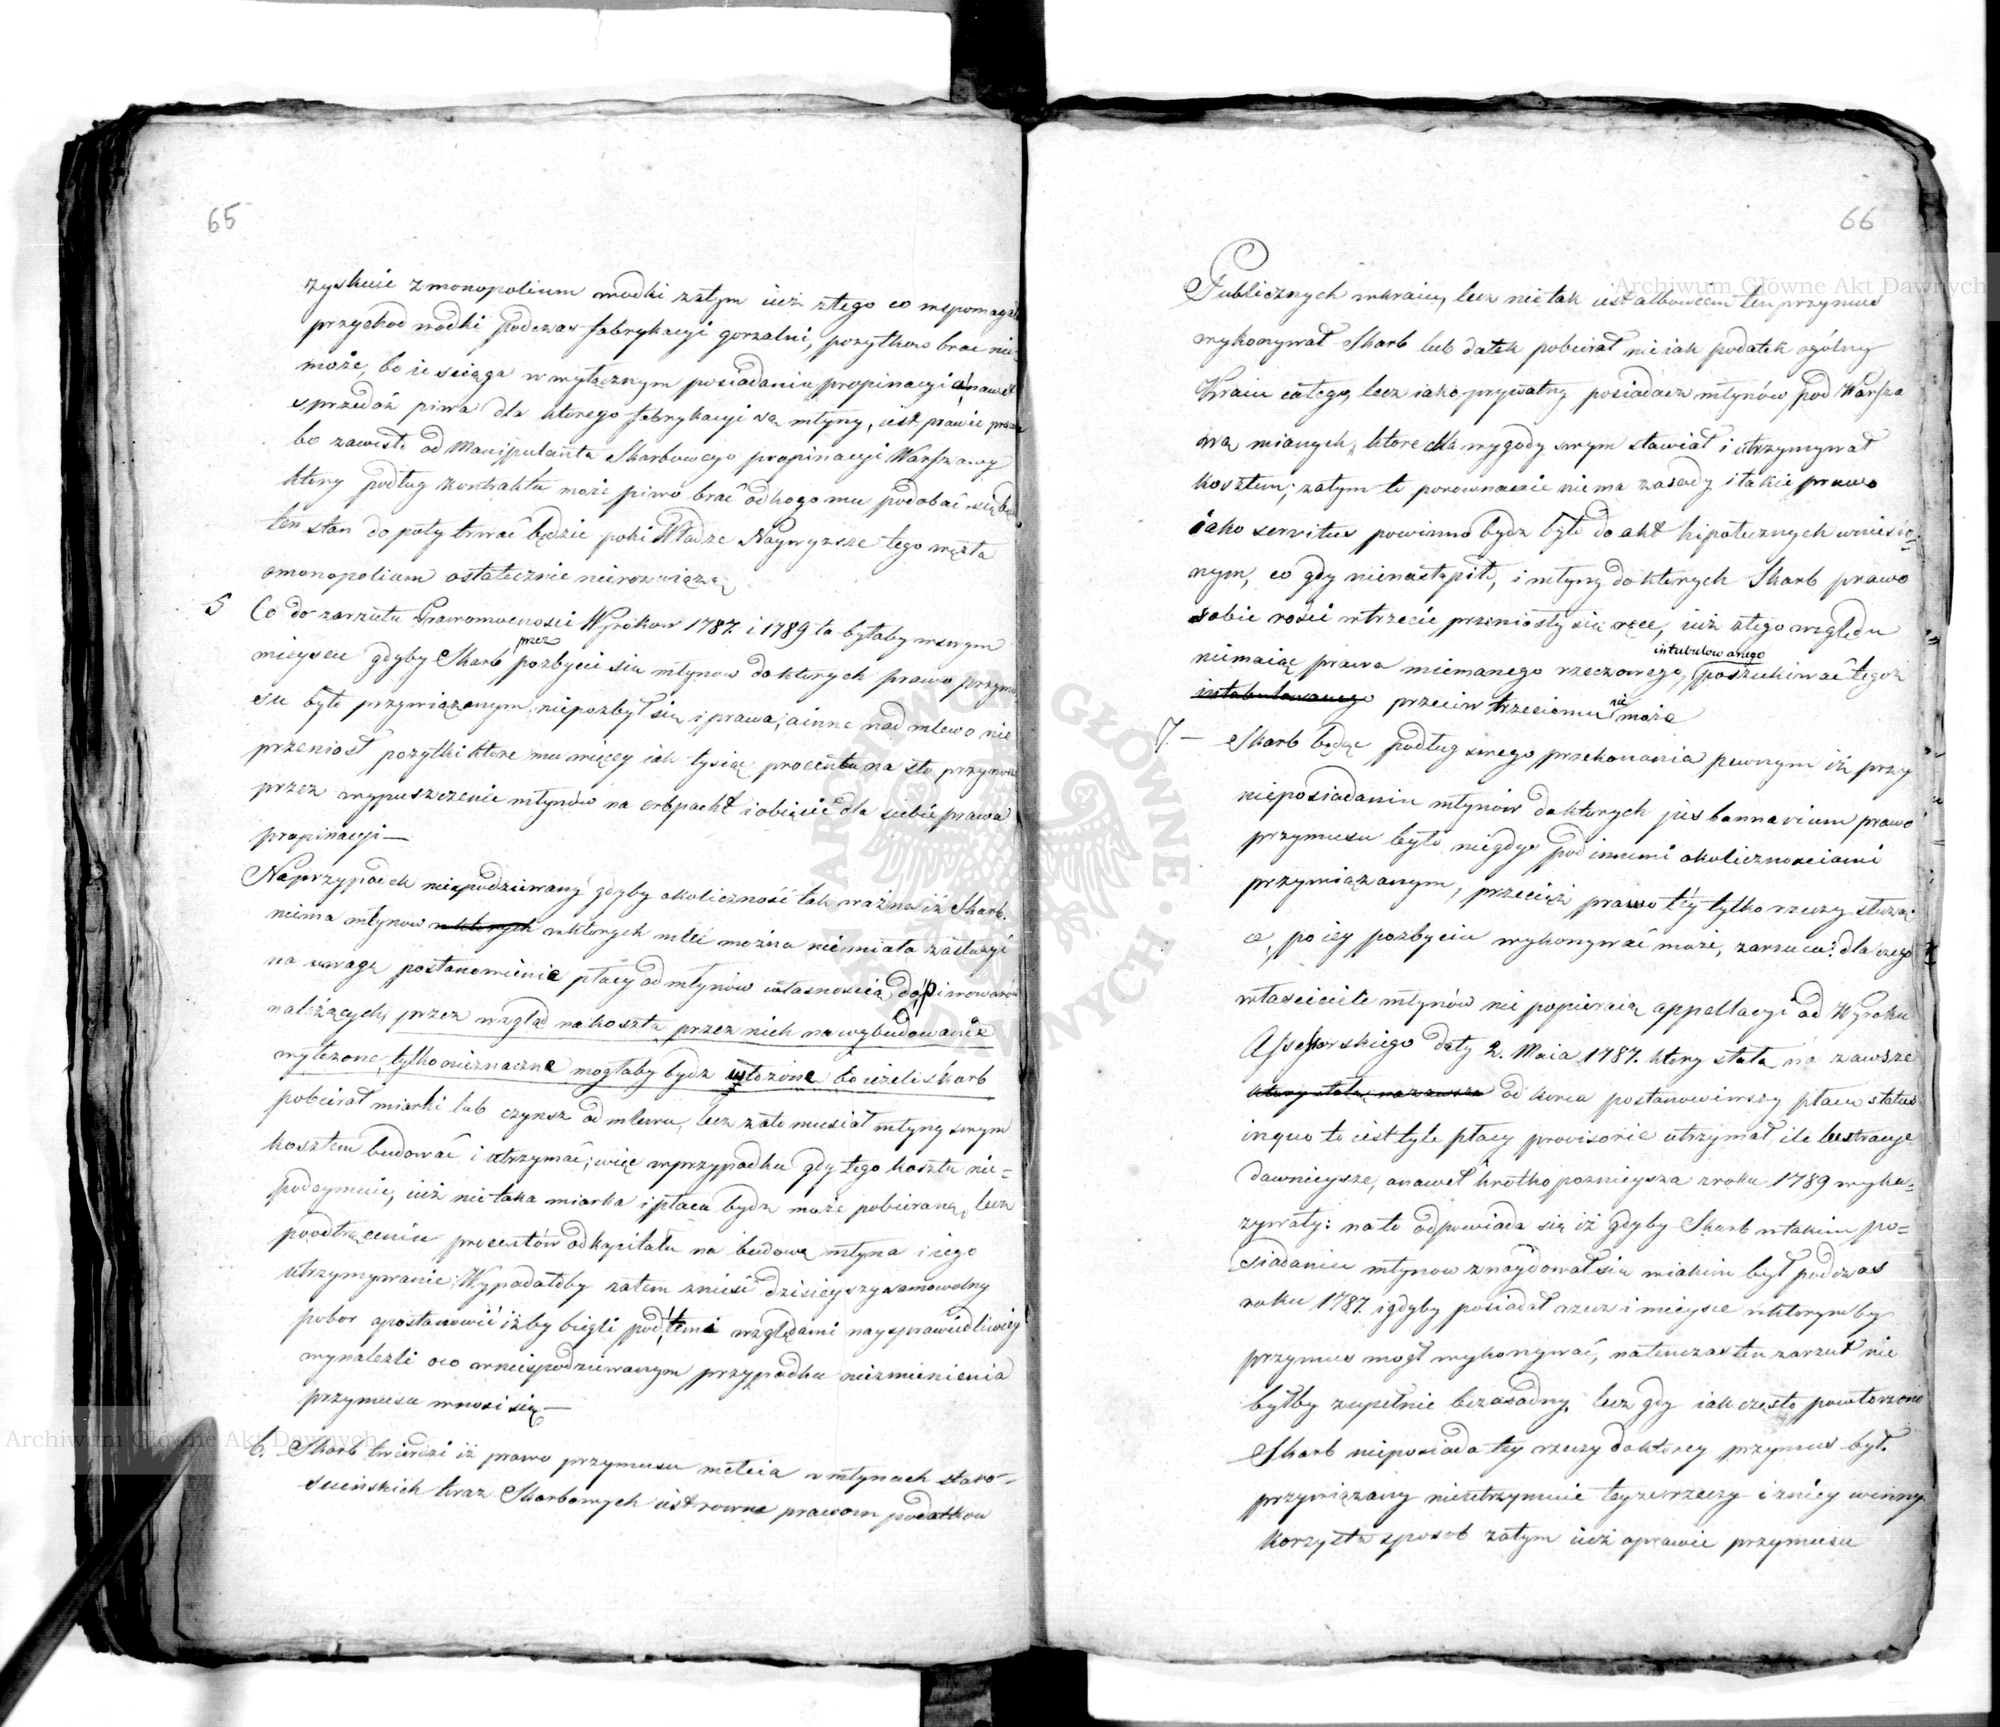 65
zyskuie z monopolium wodki zatym iuż z tego co wspomaga
przychod wodki podczas fabrykacyi gorzalni, pożytkow brac nie
może, bo iest w wyłącznym posiadaniu propinacyi a nawet
sprzedaż piwa dla ktorego fabrykacyi są młyny, iest prawie
bo zawisło od Manipulanta Skarbowego propinacyi Warszawy
ktory podług kontraktu może piwo brać od kogo mu podobać się
ten stan do poty trwać będzie poki Władze Naywyzsze tego węzła
o monopolium ostatecznie nierozwiążą
5 Co do zarzutu Prawomocności Wyroków 1787. i 1789 ta byłaby w swym
mieyscu gdyby Skarb przez pozbycie się młynow do ktorych prawo przymu
su było przywiązanym, niepozbył się i prawa; a inne nad mlewo nie
przeniosł pożytki ktore mu więcey iak tysiąc procentu na sto przynoszą
przez wypuszczenie młynów na erbpacht i obięcie dla siebie prawa
propinacyi —
Na przypadek niespodziewany gdyby okoliczność tak ważna iż Skarb
niema młynow w ktorych w ktorych mleć można nie miała zasłużyć
na uwagę postanowienie płacy od młynów własnością do piwowarów
należących, przez wzgląd na koszta przez nich na wybudowanie
wyłożone, tylko nieznaczna mogłaby bydz włożona bo ieżeli skarb
pobierał miarki lub czynsz od mlewa, lecz zato musiał młyny swym
kosztem budować i utrzymać; więc w przypadku gdy tego kosztu nie=
podeymuie, iuż nie taka miarka i płaca bydz może pobierana, lecz
po odtrąceniu procentów od kapitału na budowę młyna i iego
utrzymywanie; Wypadałoby zatem znieść dzisieyszy samowolny
pobor a postanowić iżby biegli pod temi względami naysprawiedliwiey
wynalezli o co w niespodziewanym przypadku niezmienienia
przymusu wnosi się —
6. Skarb twierdzi iż prawo przymusu mełcia w młynach staro=
scińskich teraz Skarbowych iest rowne prawom podatkow
66
Publicznych w kraiu, lecz nie tak iest albowiem ten przymus
wykonywał Skarb lub datek pobierał nie iak podatek ogólny
Kraiu całego, lecz iako prywatny posiadacz młynów pod Warsza
wą mianych, ktore dla wygody swym stawiał i utrzymywał
kosztem; zatym to porownanie niema zasady i takie prawo
iako servitus powinno bydz było do akt hipotecznych wniesio=
nym, co gdy nienastąpiło, i młyny do ktorych Skarb prawo
sobie rości w trzecie przeniosły się ręce, iuż z tego względu
niemaiąc prawa mniemanego rzeczowego, intabulowanego poszukiwać tegoż
intabulowanego przeciw trzeciemu nie może
7. — Skarb będąc podług swego przekonania pewnym iż przy
nieposiadaniu młynów do ktorych jus bannarium prawo
przymusu było niegdyś pod innemi okolicznościami
przywiązanym, przecież prawo tey tylko rzeczy służą=
ce, po iey pozbyciu wykonywać może, zarzuca: dla czego
właściciele młynów nie popieraią appellacyi od Wyroku
Assessorskiego daty 2. Maia 1787. ktory stałą na zawsze
ktory stałą na zawsze od korca postanowiwszy płacę status
in quo to iest tyle płacy provisorie utrzymał ile lustracye
dawnieysze, a nawet krotko poznieysza z roku 1789 wyka=
zywały: na to odpowiada się iż gdyby Skarb w takim po=
siadaniu młynow znaydował się w iakim był podczas
roku 1787. i gdyby posiadał rzecz i mieysce w ktorym by
przymus mogł wykonywać, natenczas ten zarzut nie
byłby zupełnie bezasadny, lecz gdy iak często powtorzono
Skarb nieposiada tey rzeczy do ktorey przymus był
przywiązany nieutrzymuie teyze rzeczy i z niey w inny
korzysta sposob zatym iuż o prawie przymusu